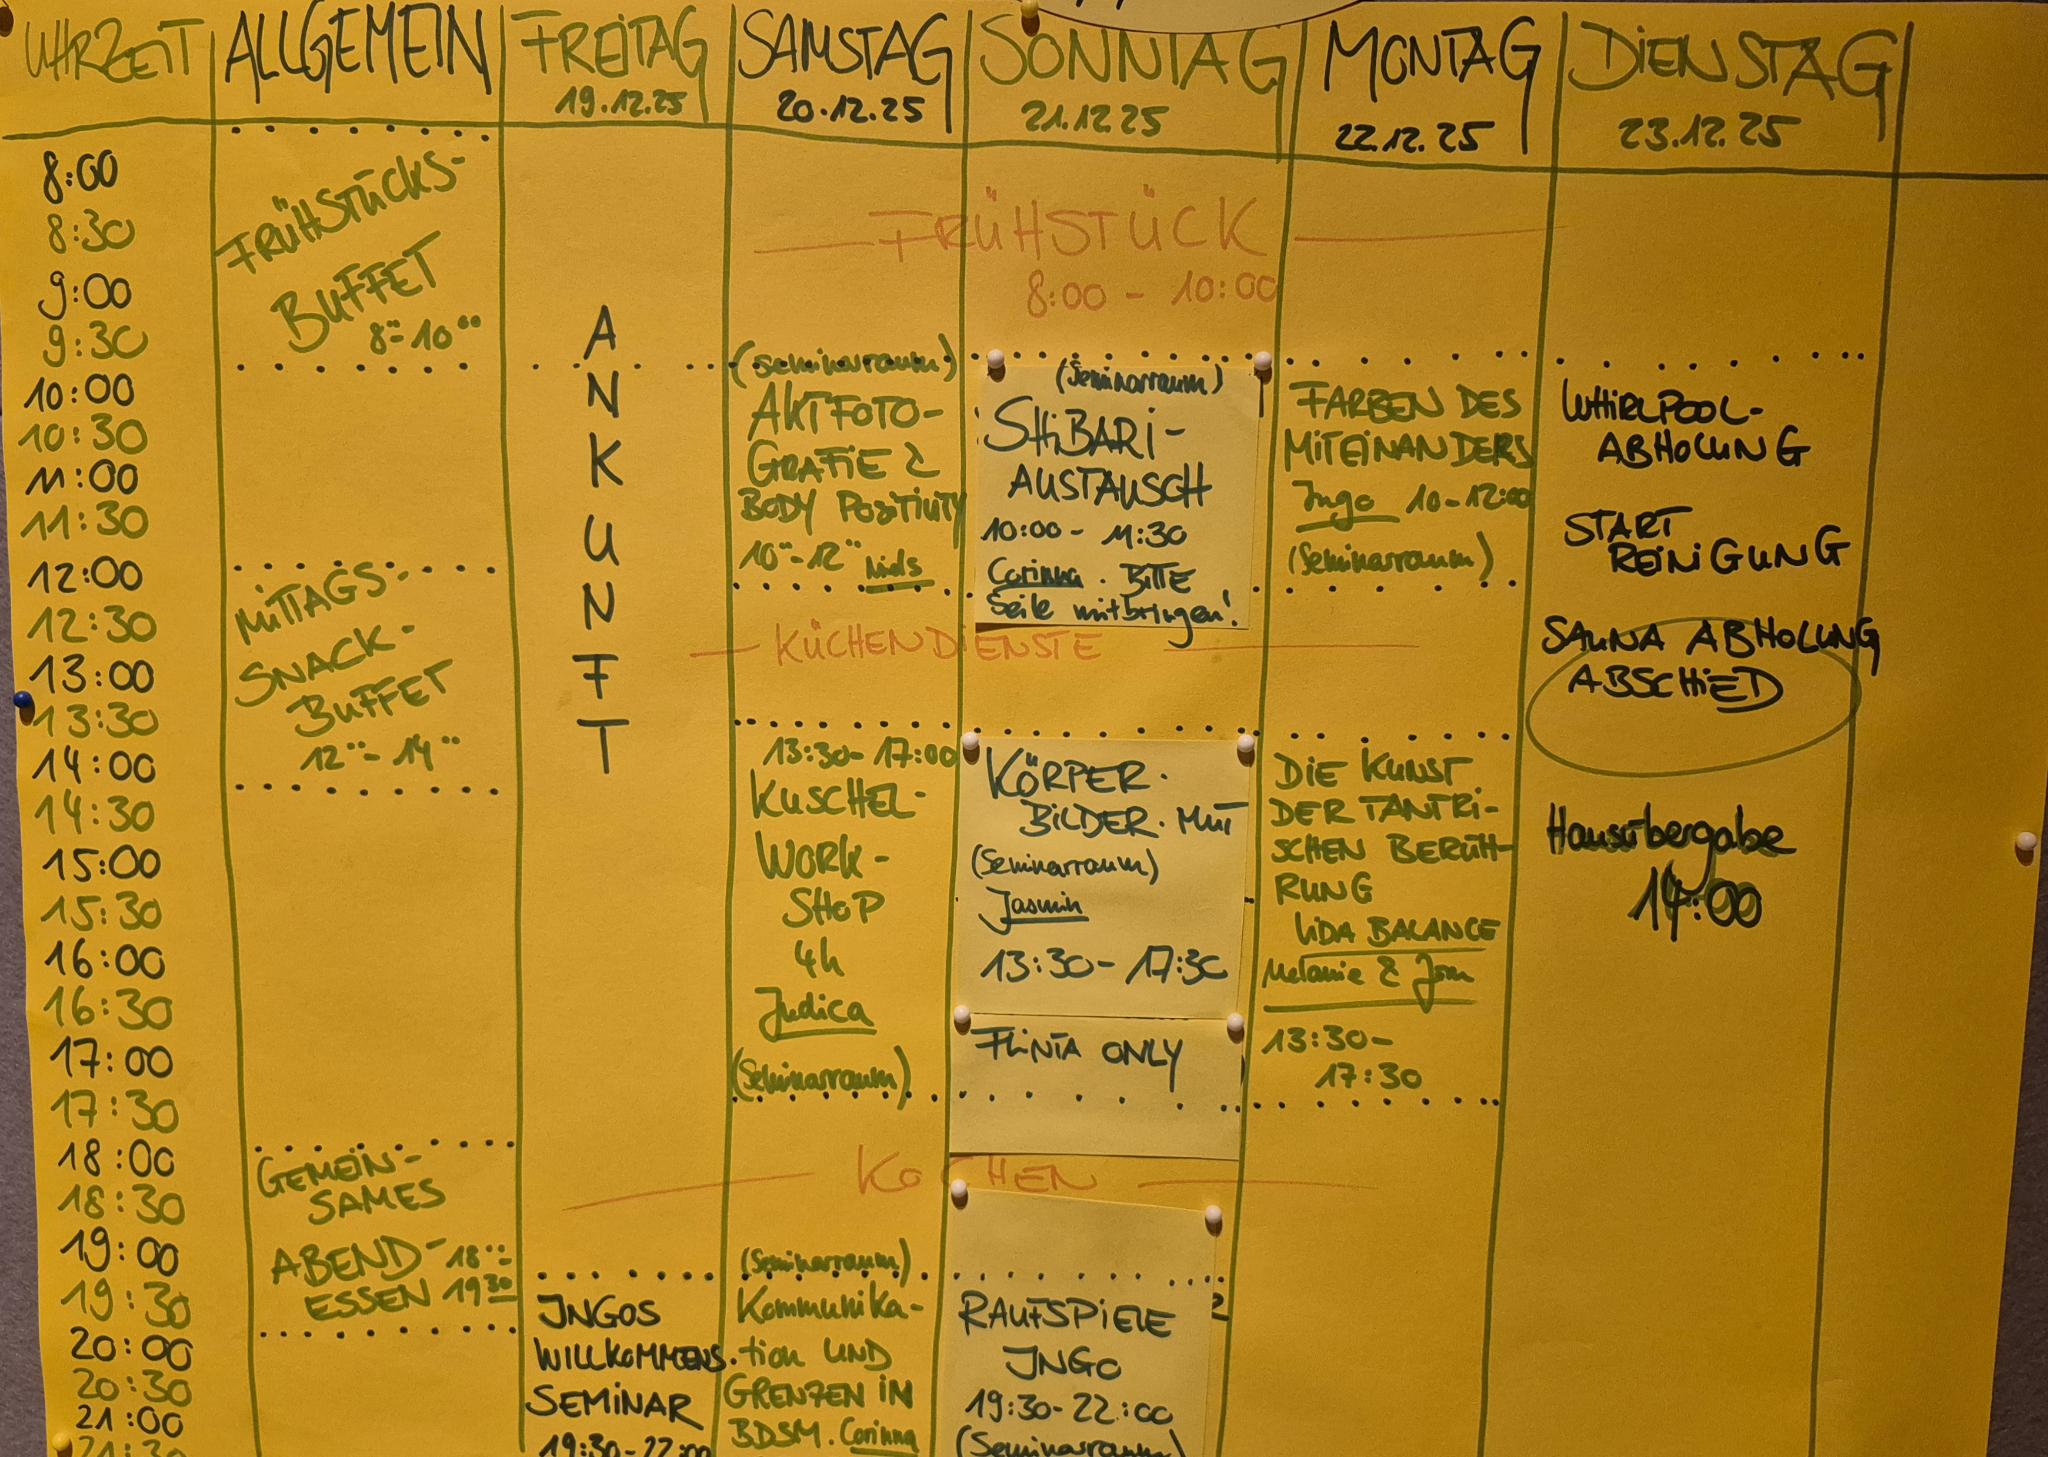 UHRZEIT ALLGEMEIN FREITAG SAMSTAG SONNTAG MONTAG DIENSTAG
19.12.25 20.12.25 21.12.25 22.12.25 23.12.25
8:00
8:30
9:00
9:30
10:00
10:30
11:00
11:30
12:00
12:30
13:00
13:30
14:00
14:30
15:00
15:30
16:00
16:30
17:00
17:30
18:00
18:30
19:00
19:30
20:00
20:30
21:00
21:30
FRÜHSTÜCKS-
BUFFET
8°°-10°°
MITTAGS-
SNACK-
BUFFET
12°°-14°°
GEMEIN-
SAMES
ABEND- 18°°-
ESSEN 19³⁰
ANKUNFT
JNGOS
WILLKOMMENS-
SEMINAR
19:30-22:00
FRÜHSTÜCK
8:00 - 10:00
(Seminarraum)
AKTFOTO-
GRAFIE &
BODY POSITIVITY
10°°-12°° Niels
KÜCHENDIENSTE
13:30-17:00
KUSCHEL-
WORK-
SHOP
4h
Judica
(Seminarraum)
KOCHEN
(Seminarraum)
Kommunika-
tion UND
GRENZEN IN
BDSM. Corinna
(Seminarraum)
SHIBARI-
AUSTAUSCH
10:00 - 11:30
Corinna. BITTE
Seile mitbringen!
KÖRPER.
BILDER. MUT
(Seminarraum)
Jasmin
13:30- 17:30
FLINTA ONLY
RAUFSPIELE
JNGO
19:30-22:00
(Seminarraum)
FARBEN DES
MITEINANDERS
Jngo 10-12:00
(Seminarraum)
DIE KUNST
DER TANTRI-
SCHEN BERÜH-
RUNG
LIDA BALANCE
Melanie & Jörn
13:30-
17:30
WHIRLPOOL-
ABHOLUNG
START
REINIGUNG
SAUNA ABHOLUNG
ABSCHIED
Hausübergabe
14:00